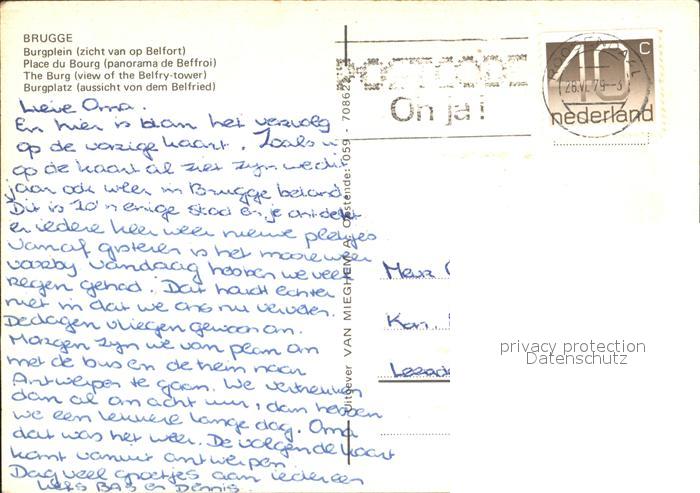 BRUGGE
Burgplein (zicht van op Belfort)
Place du Bourg (panorama de Beffroi)
The Burg (view of the Belfry-tower)
Burgplatz (aussicht von dem Belfried)
Lieve Oma.
En hier is dan het vervolg
op de vorige kaart. Zoals u
op de kaart al ziet zijn we dit
jaar ook weer in Brugge beland.
Dit is zo'n enige stad en je ontdekt
er iedere keer weer nieuwe plekjes
Vanaf gisteren is het mooie weer
voorbij vandaag hebben we veel
regen gehad. Dat houdt echter
niet in dat we ons nu vervelen.
De dagen vliegen gewoon om.
Morgen zijn we van plan om
met de bus en de trein naar
Antwerpen te gaan. We vertrekken
dan al om acht uur, dan hebben
we een lekkere lange dag. Oma
dat was het weer. De volgende kaart
komt vanuit antwerpen.
Dag veel groetjes aan iedereen
liefs BAS en Dennis.
Uitgever VAN MIEGHEM A. Oostende: 059 - 70862
POSTCODE
Oh ja!
40 c
nederland
Mevr
Kon.
Leeuw
privacy protection
Datenschutz